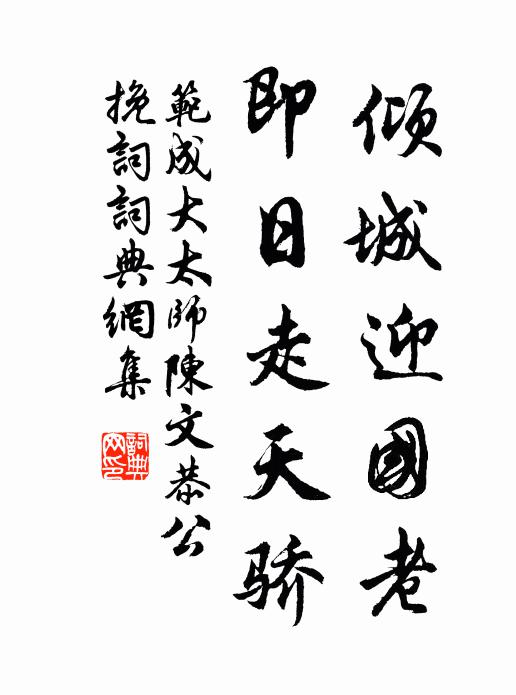 倾城迎國老
即日走天骄
範成大太師陳文恭公
挽詞詞典網集
詞典
网印